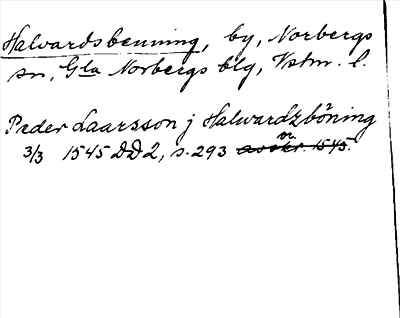 Halvardsbenning, by, Norbergs
sn, Gla Norbergs blg, Vstm. l.
Peder Laarsson j Halwardzböning
3/3 1545 DD2, s. 293 avskr. 1545.